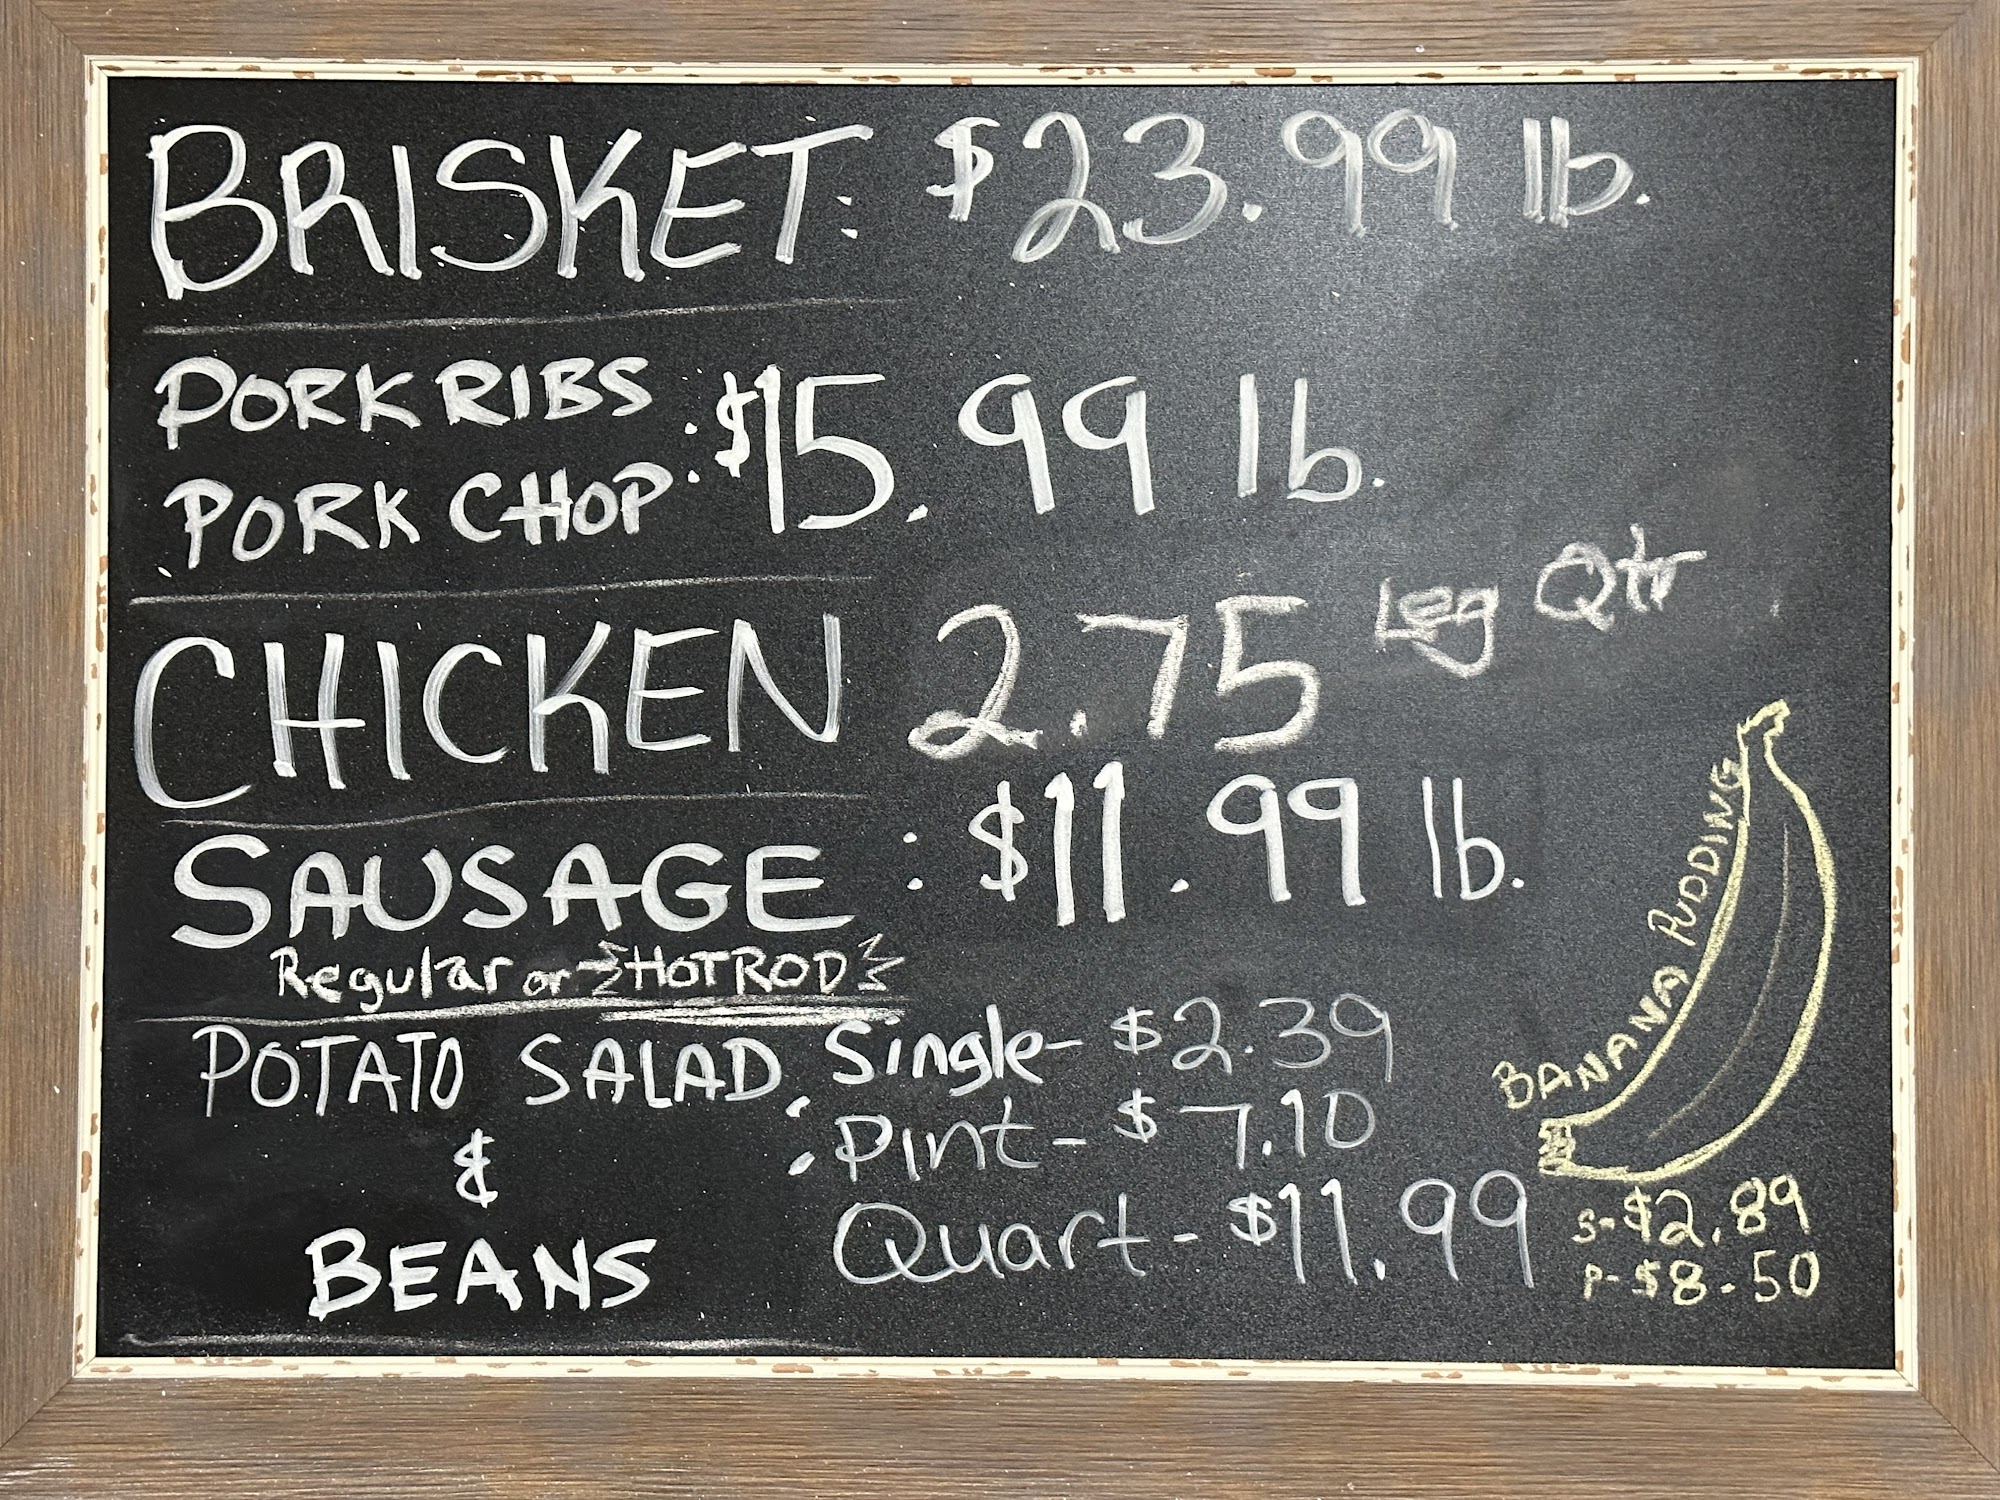 BRISKET: $23.99 lb.
PORK RIBS
PORK CHOP : $15.99 lb.
CHICKEN 2.75 Leg Qtr
SAUSAGE : $11.99 lb.
Regular or HOTROD
POTATO SALAD : Single- $2.39
&
: Pint- $7.10
BEANS
Quart- $11.99
BANANA PUDDING
S-$2.89
P-$8.50